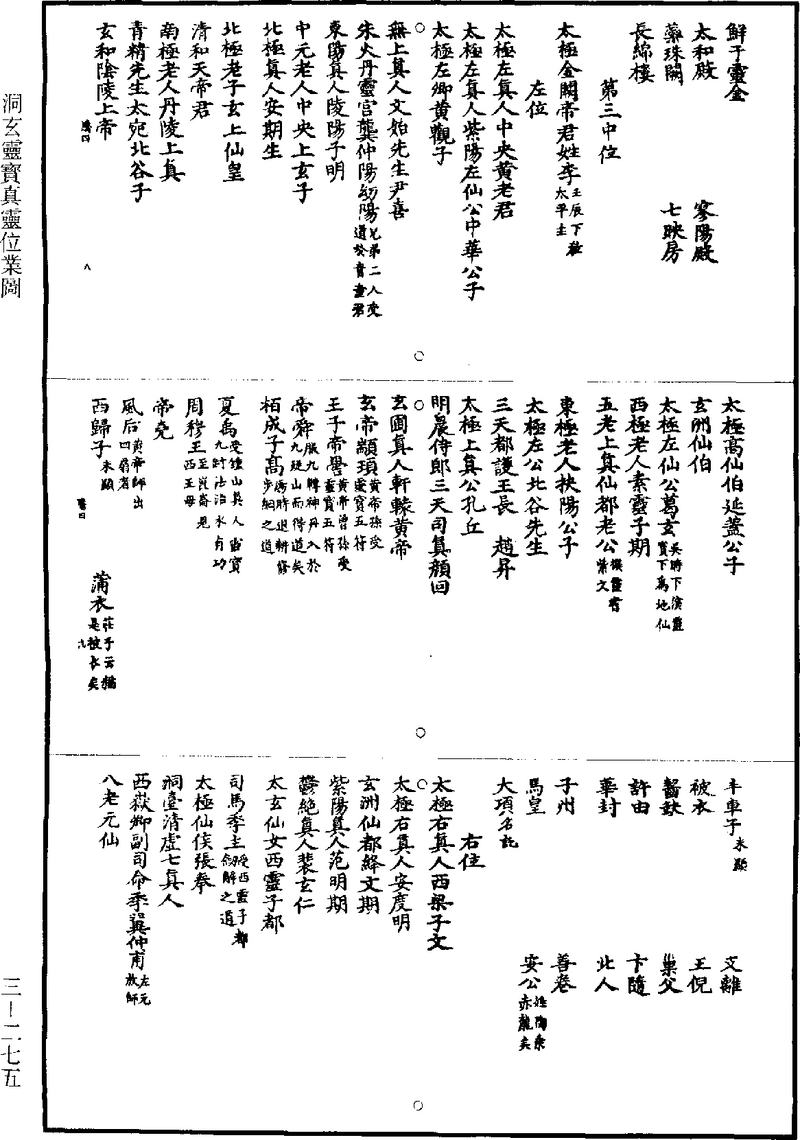 鮮于靈金
太和殿　寥陽殿
蘂珠闕　七映房
長綿樓
第三中位
太極金闕帝君姓李壬辰下教太平主
左位
太極左真人中央黃老君
太極左真人紫陽左仙公中華公子
太極左卿黃觀子
無上真人文始先生尹喜
朱火丹靈宫龔仲陽幼陽兄弟二人受道於青童君
東陽真人陵陽子明
中元老人中央上玄子
北極真人安期生
北極老子玄上仙皇
清和天帝君
南極老人丹陵上真
青精先生太宛北谷子
玄和陰陵上帝
騰四　八
太極高仙伯延蓋公子
玄洲仙伯
太極左仙公葛玄吳時下演靈寶下為地仙
西極老人素靈子期
五老上真仙都老公撰靈書紫文
東極老人扶陽公子
太極左公北谷先生
三天都護王長　趙昇
太極上真公孔丘
明晨侍郎三天司真顏回
玄圃真人軒轅黃帝
玄帝顓頊黃帝孫受靈寶五符
王子帝嚳黃帝曾孫受靈寶五符
帝舜服九轉神丹入於九疑山而得道矣
栢成子高禹時退耕修步綱之道
夏禹受鍾山真人靈寶九跡法治水有功
周穆王至崑崙見西王母
帝堯
風后黃帝師出四扇者
西歸子未顯　蒲衣莊子云猶是被衣矣
騰四　九
丰車子未顯　支離
被衣　王倪
齧缺　巢父
許由　卞隨
華封　北人
子州　善卷
馬皇　安公姓陶乘赤龍矣
大項名託
右位
太極右真人西梁子文
太極右真人安度明
玄洲仙都絳文期
紫陽真人范明期
鬱絶真人裴玄仁
太玄仙女西靈子都
司馬季主受西靈子都劔解之道
太極仙侯張奉
洞臺清虛七真人
西嶽卿副司命季翼仲甫左元放師
八老元仙
洞玄靈寶真靈位業圖
三－二七五